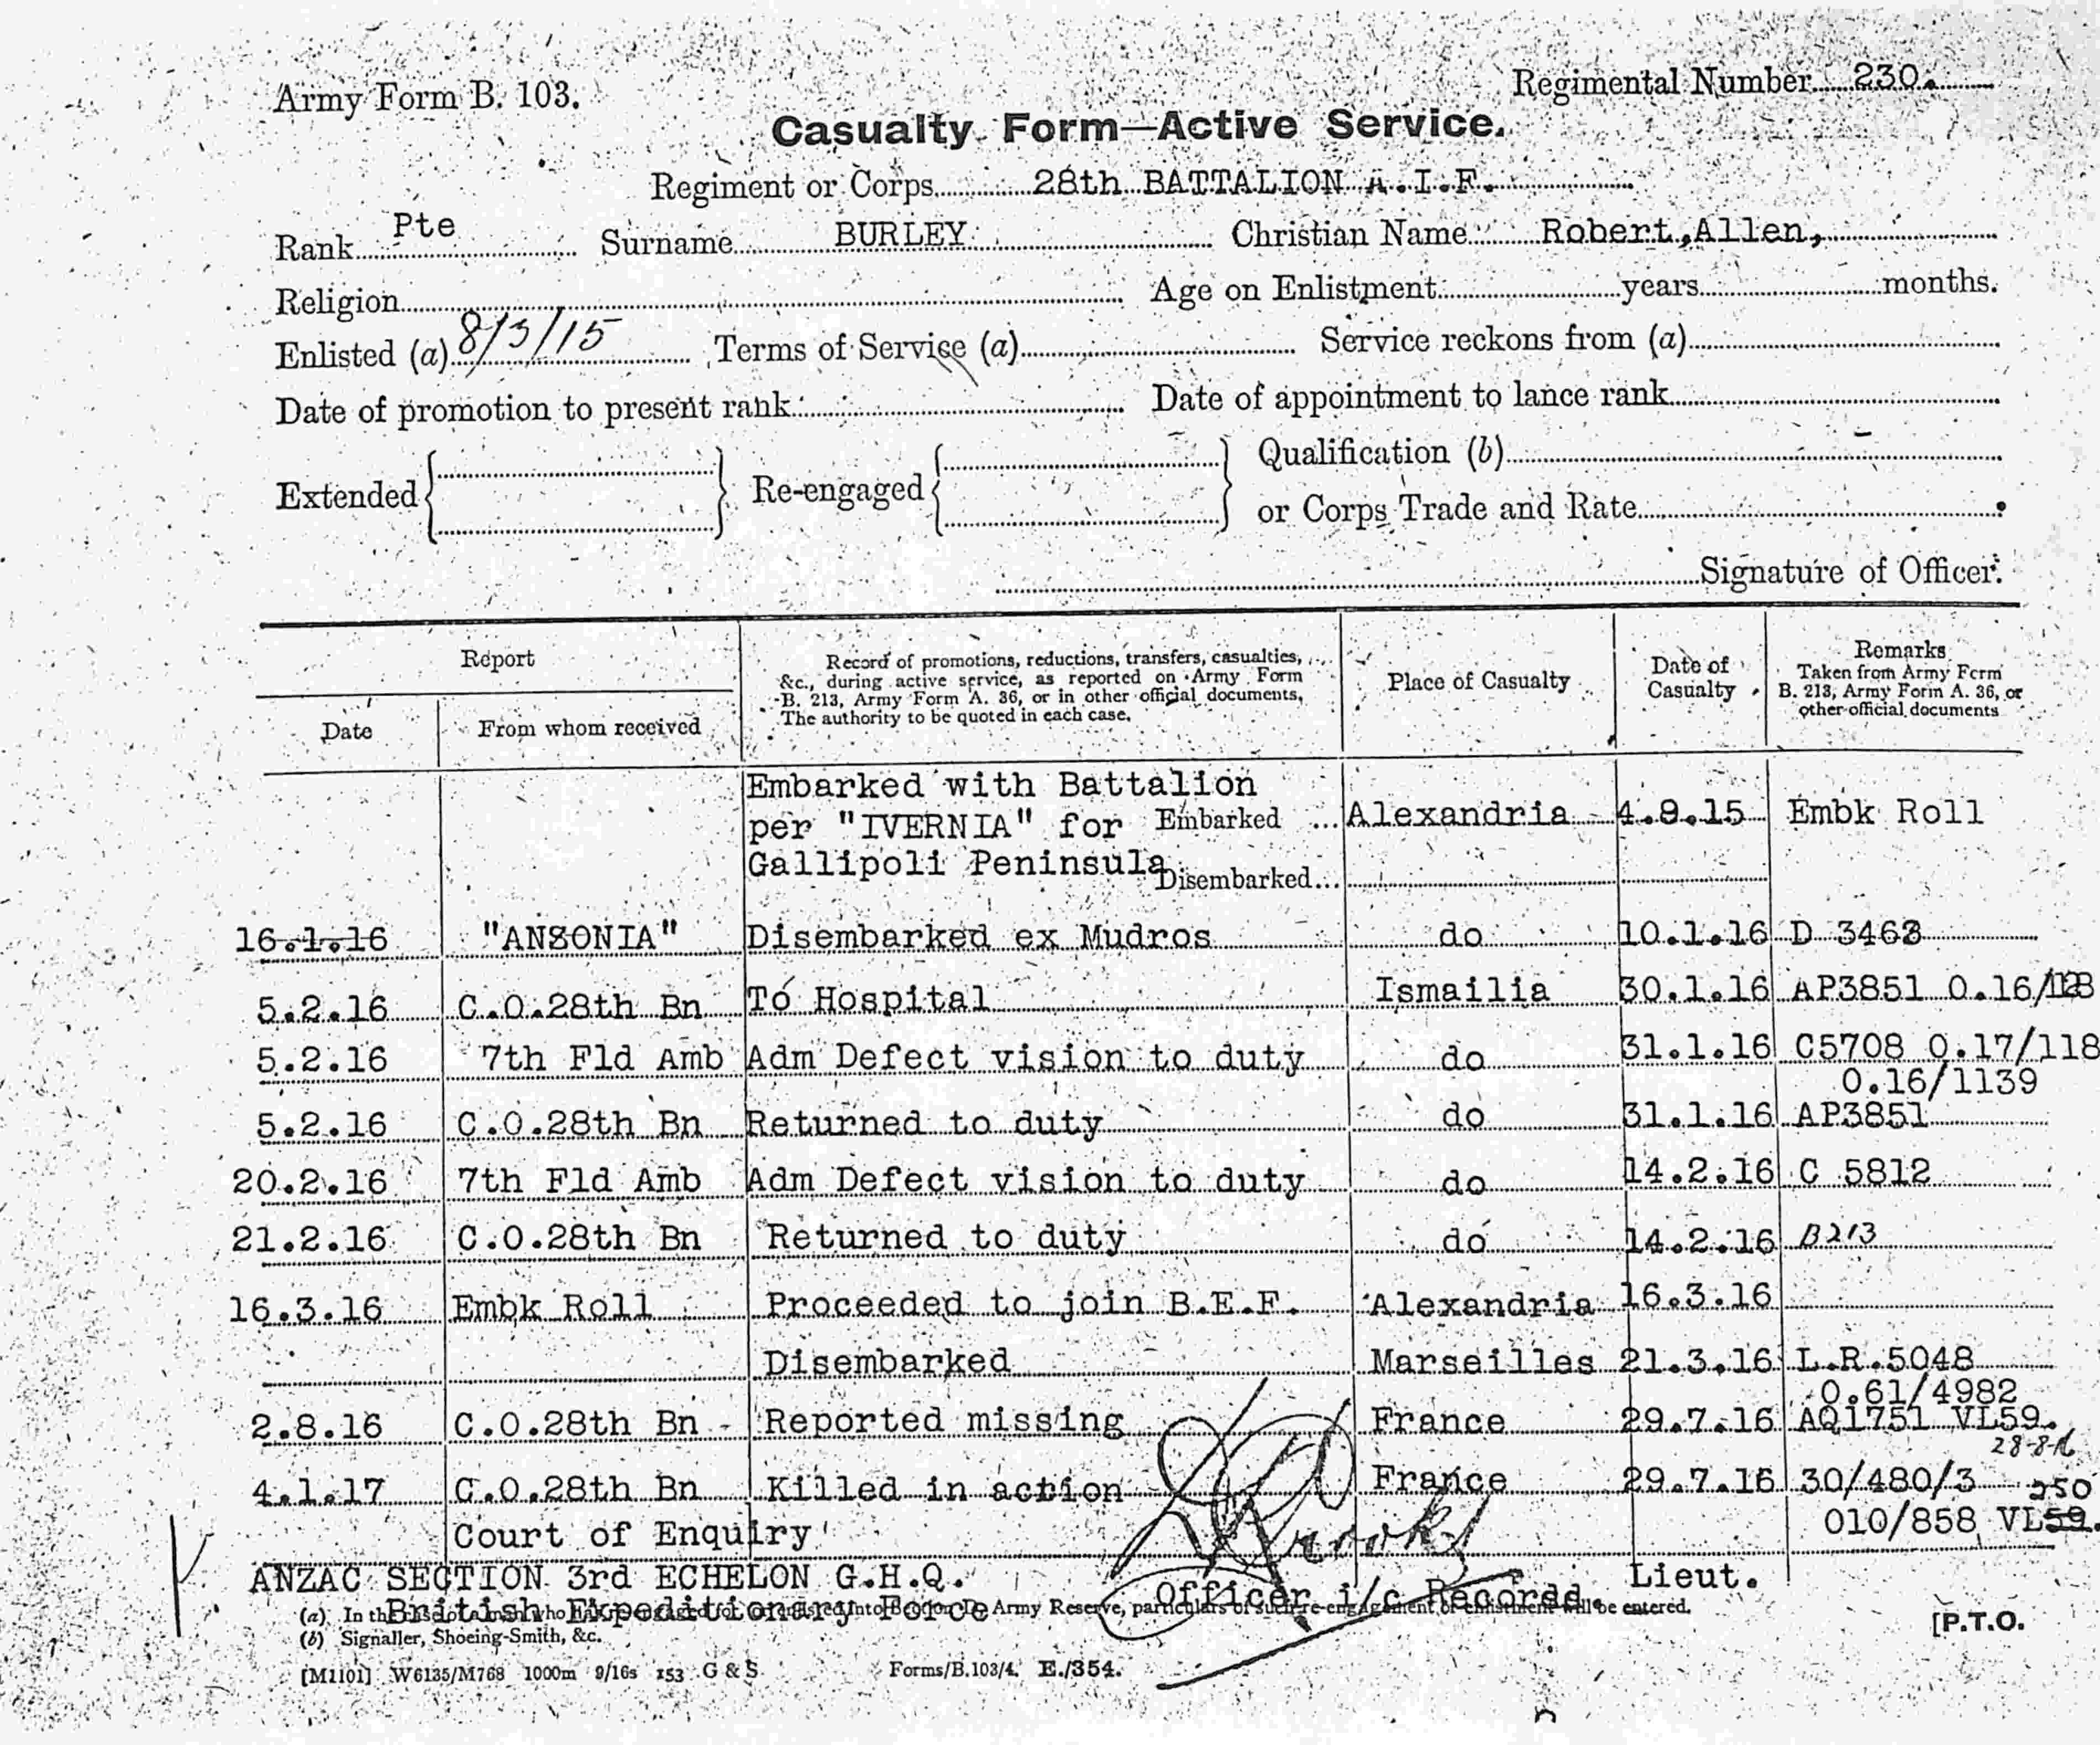 Army Form B. 103.
Regimental Number 230.
Casualty Form—Active Service.
Regiment or Corps 28th BATTALION A.I.F.
Rank Pte Surname BURLEY Christian Name Robert,Allen,
Religion Age on Enlistment years months.
Enlisted (a) 8/3/15 Terms of Service (a) Service reckons from (a)
Date of promotion to present rank Date of appointment to lance rank
Extended Re-engaged Qualification (b)
or Corps Trade and Rate
Signature of Officer.
Report
Date From whom received
Record of promotions, reductions, transfers, casualties,
&c., during active service, as reported on Army Form
B. 213, Army Form A. 36, or in other official documents,
The authority to be quoted in each case.
Place of Casualty
Date of
Casualty
Remarks
Taken from Army Form
B. 213, Army Form A. 36, or
other official documents
Embarked with Battalion
per "IVERNIA" for Embarked ... Alexandria 4.9.15 Embk Roll
Gallipoli Peninsula Disembarked...
16.1.16 "ANSONIA" Disembarked ex Mudros do 10.1.16 D 3463
5.2.16 C.O.28th Bn To Hospital Ismailia 30.1.16 AP3851 0.16/
5.2.16 7th Fld Amb Adm Defect vision to duty do 31.1.16 C5708 0.17/118
0.16/1139
5.2.16 C.O.28th Bn Returned to duty do 31.1.16 AP3851
20.2.16 7th Fld Amb Adm Defect vision to duty do 14.2.16 C 5812
21.2.16 C.O.28th Bn Returned to duty do 14.2.16 B213
16.3.16 Embk Roll Proceeded to join B.E.F. Alexandria 16.3.16
Disembarked Marseilles 21.3.16 L.R.5048
0.61/4982
2.8.16 C.O.28th Bn Reported missing France 29.7.16 AQ1751 VL59.
28-8-16
4.1.17 C.O.28th Bn Killed in action France 29.7.16 30/480/3
250
Court of Enquiry 010/858 VL59.
ANZAC SECTION 3rd ECHELON G.H.Q. Lieut.
British Expeditionary Force Officer i/c Records.
(a) In the case of a man who has re-engaged for, or enlisted into Section D, Army Reserve, particulars of such re-engagement or enlistment will be entered.
(b) Signaller, Shoeing-Smith, &c.
[P.T.O.
[M1101] W6135/M768 1000m 9/16s 153 G & S Forms/B.103/4. E./354.